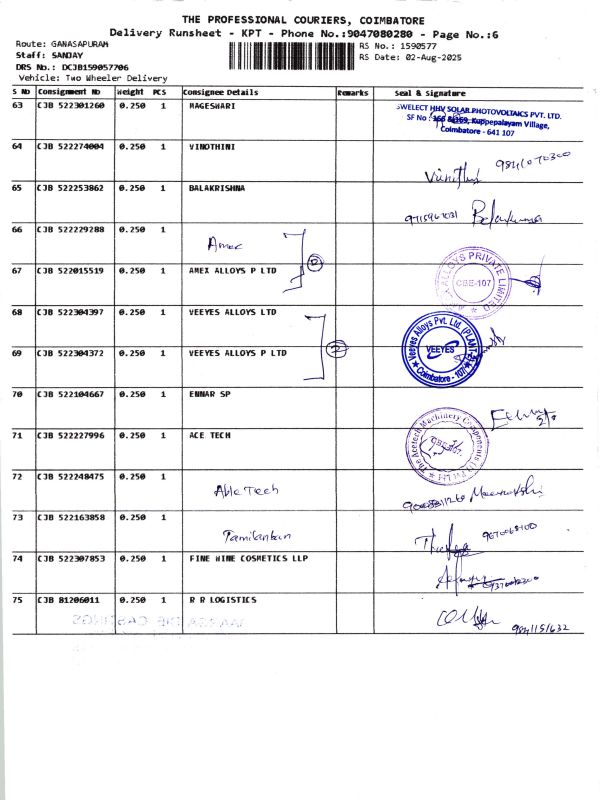 THE PROFESSIONAL COURIERS, COIMBATORE
Delivery Runsheet - KPT - Phone No.:9047080280 - Page No.:6
Route: GANASAPURAM
RS No.: 1590577
Staff: SANJAY
RS Date: 02-Aug-2025
DRS No.: DCJB159057706
Vehicle: Two Wheeler Delivery
S No Consignment No Weight PCS Consignee Details Remarks Seal & Signature
63 CJB 522301260 0.250 1 MAGESWARI
SWELECT HHV SOLAR PHOTOVOLTAICS PVT. LTD.
SF No : 166 & 169, Kuppepalayam Village,
Coimbatore - 641 107
64 CJB 522274004 0.250 1 VINOTHINI
65 CJB 522253862 0.250 1 BALAKRISHNA
66 CJB 522229288 0.250 1 Amex
2
67 CJB 522015519 0.250 1 AMEX ALLOYS P LTD
ALLOYS PRIVATE LIMITED
CBE-107
68 CJB 522304397 0.250 1 VEEYES ALLOYS LTD
2
Veeyes Alloys Pvt. Ltd. (PLANT
VEEYES
Coimbatore - 107
69 CJB 522304372 0.250 1 VEEYES ALLOYS P LTD
70 CJB 522104667 0.250 1 ENNAR SP
71 CJB 522227996 0.250 1 ACE TECH
The Acetech Machinery Components
72 CJB 522248475 0.250 1 Able Tech
73 CJB 522163858 0.250 1 Tamilanban
74 CJB 522307853 0.250 1 FINE WINE COSMETICS LLP
75 CJB 81206011 0.250 1 R R LOGISTICS
9841151632